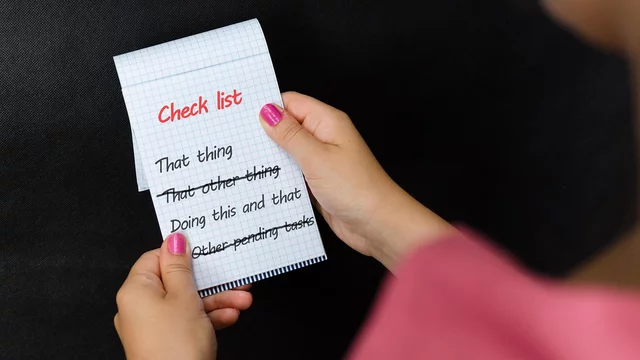 Check list
That thing
That other thing
Doing this and that
Other pending tasks